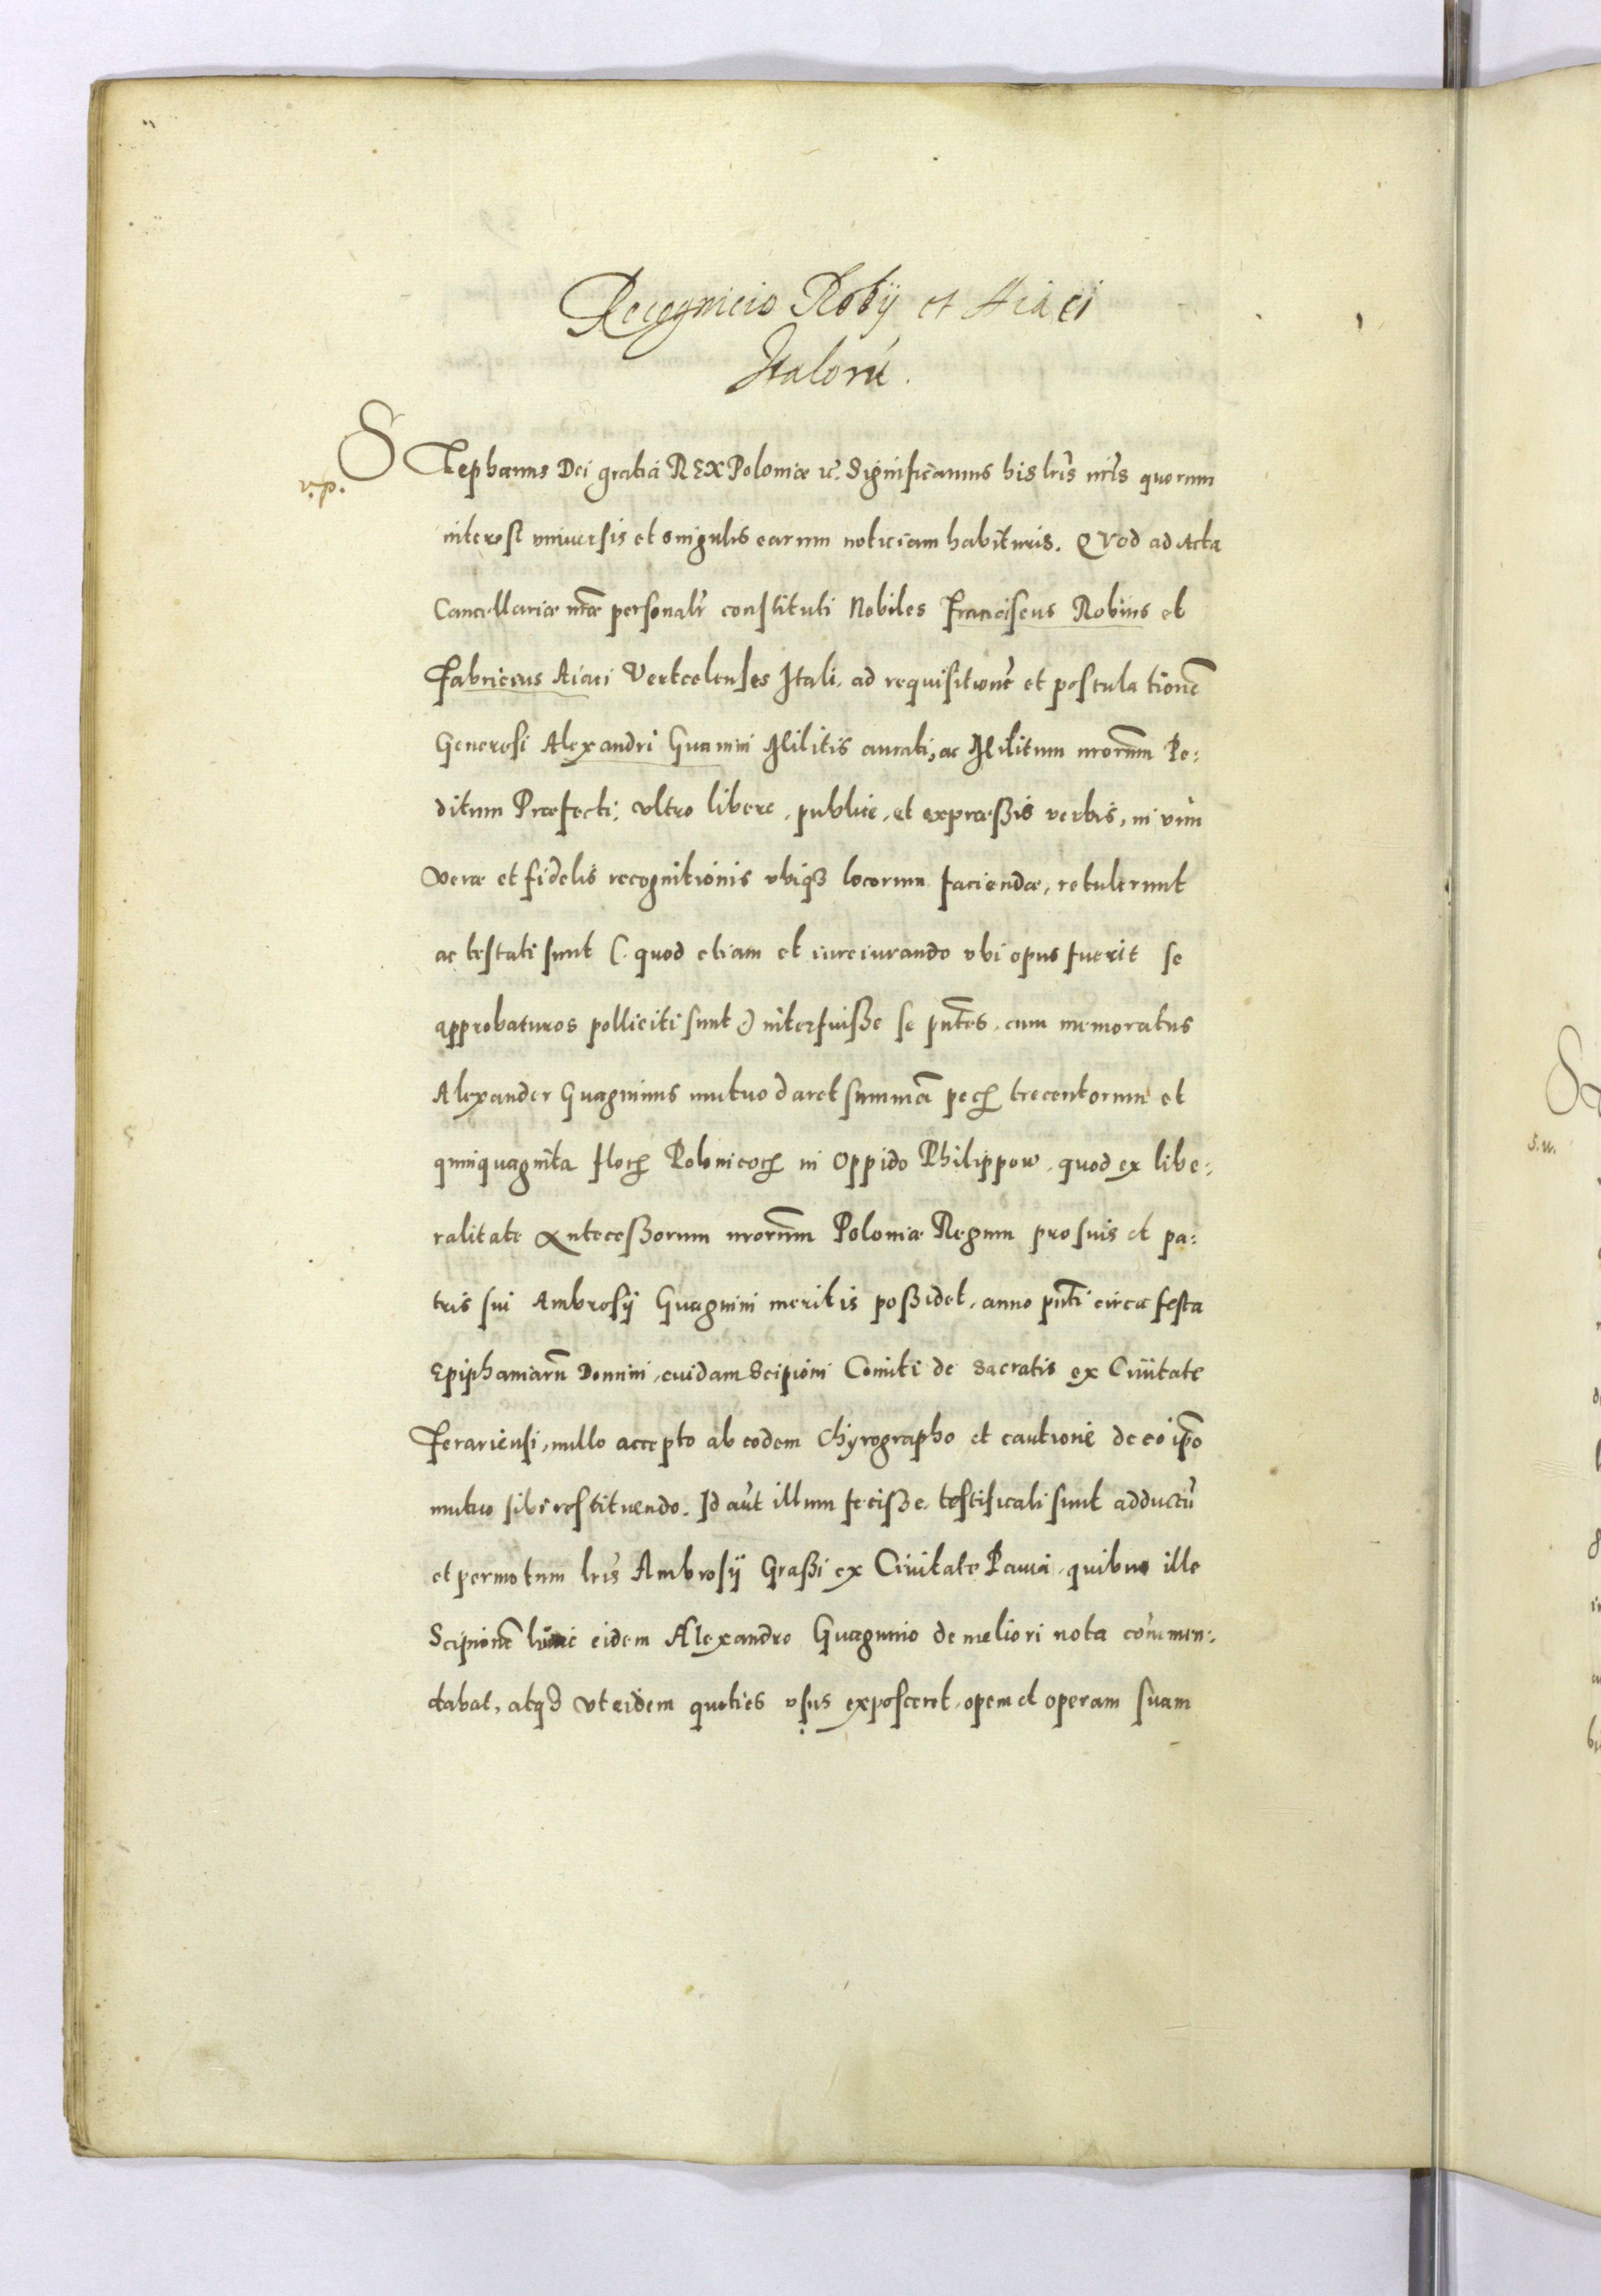 Recognicio Robÿ et Aiaci
Italorũ.
v.p.
STephanus Dei gratia REX Poloniæ ꝛc̃. Significamus his lr̃is nr̃is quorum
interest vniuersis et singulis earum noticiam habituris. QVod ad Acta
Cancellariæ nr̃æ personalr̃ constituti Nobiles Franciscus Robius et
Fabricius Aiaci Vertcelenses Itali, ad requisitionẽ et postulationẽ
Generosi Alexandri Guanini Militis aurati, ac Militum nrorũm Pe:
ditum Præfecti, vltro libere, publice, et expræßis verbis, in vim
veræ et fidelis recognitionis vbiqꝫ locorum faciendæ, retulerunt
ac testati sunt (. quod etiam et iureiurando vbi opus fuerit se
approbaturos polliciti sunt .) interfuiße se pñtes, cum memoratus
Alexander Guagninus mutuo daret summã pecꝝ trecentorum et
quinquaginta floꝝ Polonicoꝝ in Oppido Philippow, quod ex libe:
ralitate Anteceßorum nrorũm Poloniæ Regum pro suis et pa:
tris sui Ambrosÿ Guagnini meritis poßidet, anno pñti circa festa
Epiphaniarũ Domini, cuidam Scipioni Comiti de Sacratis ex Ciuitate
Ferariensi, nullo accepto ab eodem Chyrographo et cautione de eo ip̃o
mutuo sibi restituendo. Id aũt illum feciße testificati sunt adductũ
et permotum lr̃is Ambrosÿ Graßi ex Ciuitate Pauia, quibus ille
Scipionẽ hunc eidem Alexandro Guagnino de meliori nota com̃men:
dabat, atqꝫ vt eidem quoties vsus exposceret, opem et operam suam